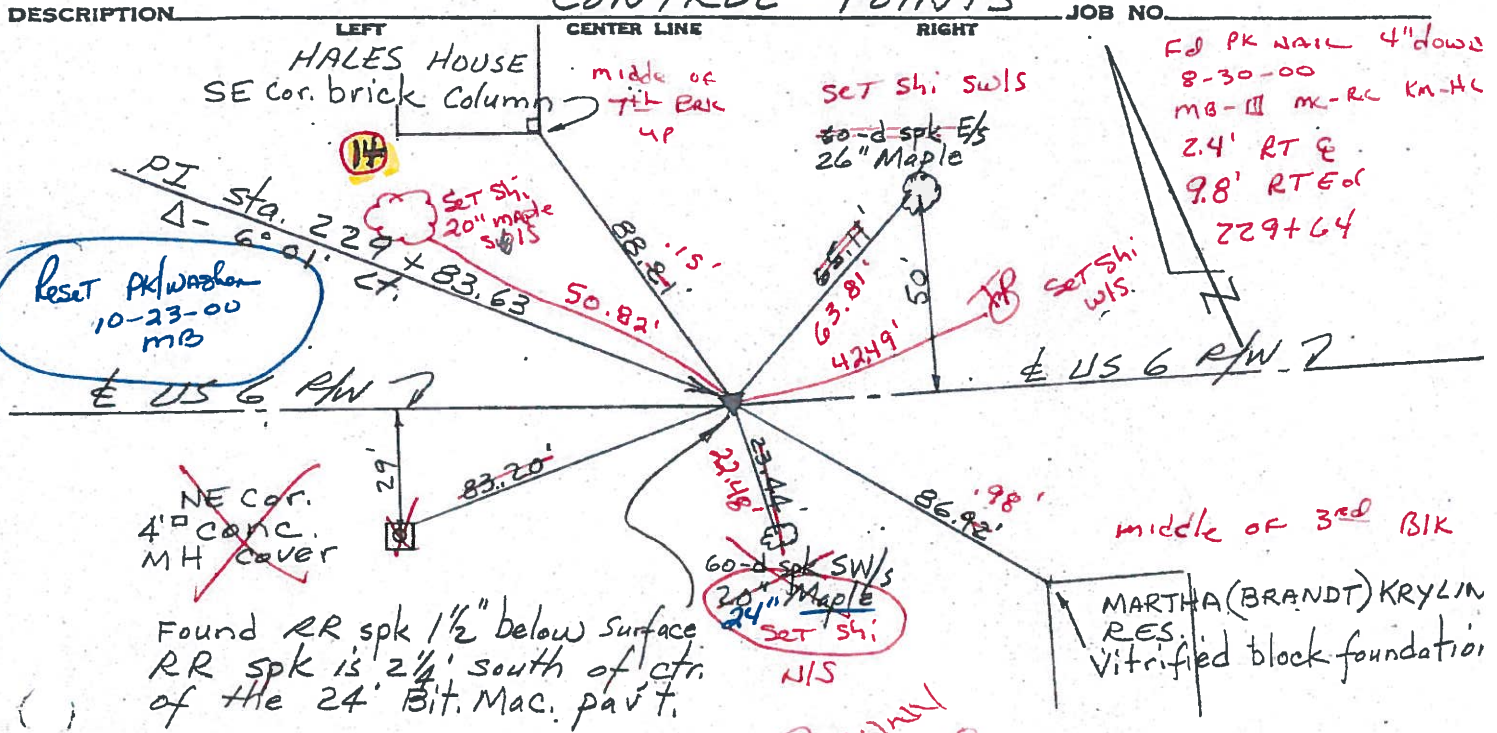 CONTROL POINTS
DESCRIPTION JOB NO.
LEFT CENTER LINE RIGHT
HALES HOUSE
SE Cor. brick Column
middle of
7th Brk
up
SET Shi SW/S
60-d spk E/S
26" Maple
Fd PK NAIL 4" down
8-30-00
MB-III MC-RC KM-HC
2.4' RT ℄
9.8' RT E of
229+64
14
PI sta. 229+83.63
Δ- 6°01' LT.
SET Shi
20" maple
SW/S
Reset PK/washer
10-23-00
MB
88.81'
.15'
50.82'
65.11'
63.81'
50'
42.49'
SET Shi
W/S.
℄ US 6 R/W
℄ US 6 R/W
29'
83.20'
NE Cor.
4'□ conc.
MH cover
23.44'
22.48'
60-d spk SW/S
20" Maple
24"
SET Shi
N/S
86.92'
.98'
middle of 3rd Blk
MARTHA (BRANDT) KRYLIN
RES.
Vitrified block foundation
Found RR spk 1½" below surface
RR spk is 2¼' south of ctr.
of the 24' Bit. Mac. pav't.
( )